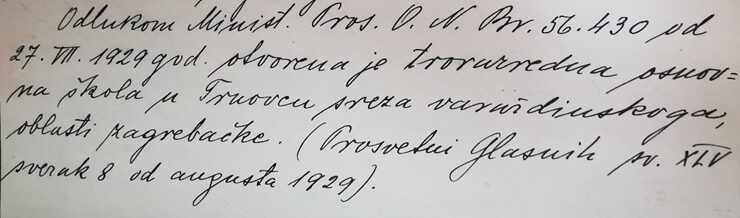 Odlukom Minist. Pros. O. N. Br. 56.430 od
27. VII. 1929 god. otvorena je trorazredna osnov=
na škola u Trnovcu sreza varaždinskoga,
oblasti zagrebačke. (Prosvetni Glasnik sv. XLV
svezak 8 od augusta 1929).